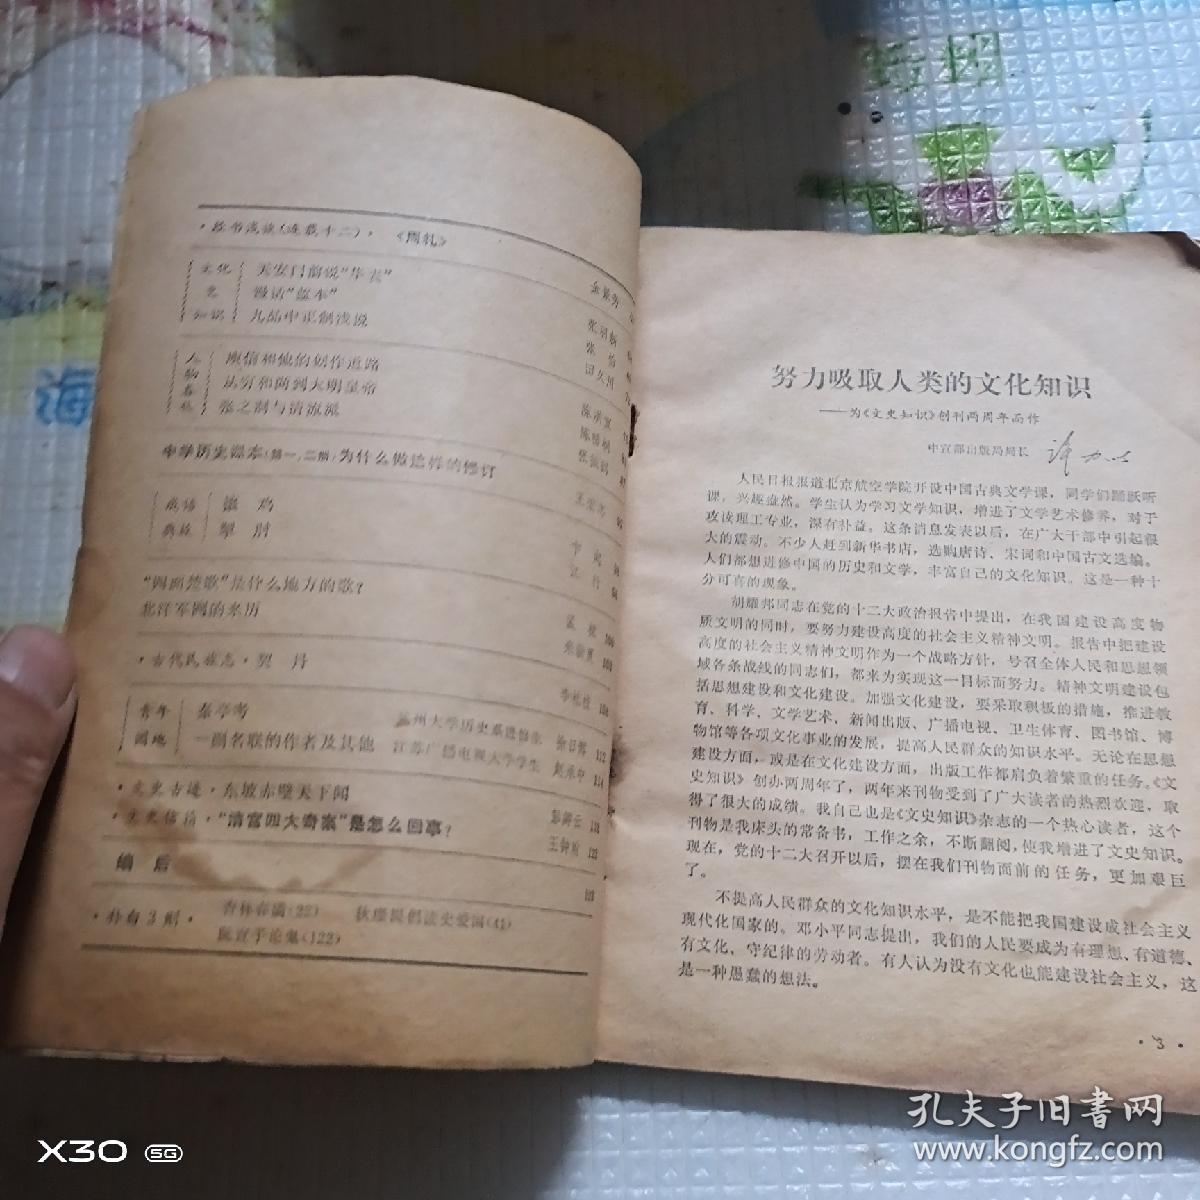 ·经书浅谈(连载十二)· 《周礼》
文化
史
知识
天安门前说“华表”
漫话“蓝本”
九品中正制浅说
人
物
春
秋
庾信和他的创作道路
从穷和尚到大明皇帝
张之洞与清流派
中学历史课本(第一、二册)为什么做这样的修订
成语
典故
“四面楚歌”是什么地方的歌?
北洋军阀的来历
·古代民族志· 契 丹
青年
园地
秦亭考 兰州大学历史系进修生
一副名联的作者及其他 江苏广播电视大学学生
·文史古迹·东坡赤壁天下闻
·文史信箱·“清宫四大奇案”是怎么回事?
编 后
·补白3则· 杏林春满(22) 狄璞提倡读史爱国(41)
阮宣子论鬼(122)
努力吸取人类的文化知识
——为《文史知识》创刊两周年而作
中宣部出版局局长 许力以
人民日报报道北京航空学院开设中国古典文学课,同学们踊跃听
课,兴趣盎然。学生认为学习文学知识,增进了文学艺术修养,对于
攻读理工专业,深有补益。这条消息发表以后,在广大干部中引起很
大的震动。不少人赶到新华书店,选购唐诗、宋词和中国古文选编。
人们都想进修中国的历史和文学,丰富自己的文化知识。这是一种十
分可喜的现象。
胡耀邦同志在党的十二大政治报告中提出,在我国建设高度物
质文明的同时,要努力建设高度的社会主义精神文明。报告中把建设
高度的社会主义精神文明作为一个战略方针,号召全体人民和思想领
域各条战线的同志们,都来为实现这一目标而努力。精神文明建设包
括思想建设和文化建设。加强文化建设,要采取积极的措施,推进教
育、科学、文学艺术、新闻出版、广播电视、卫生体育、图书馆、博
物馆等各项文化事业的发展,提高人民群众的知识水平。无论在思想
建设方面,或是在文化建设方面,出版工作都肩负着繁重的任务。《文
史知识》创办两周年了,两年来刊物受到了广大读者的热烈欢迎,取
得了很大的成绩。我自己也是《文史知识》杂志的一个热心读者,这个
刊物是我床头的常备书,工作之余,不断翻阅,使我增进了文史知识。
现在,党的十二大召开以后,摆在我们刊物面前的任务,更加艰巨
了。
不提高人民群众的文化知识水平,是不能把我国建设成社会主义
现代化国家的。邓小平同志提出,我们的人民要成为有理想、有道德、
有文化、守纪律的劳动者。有人认为没有文化也能建设社会主义,这
是一种愚蠢的想法。
·3·
海
X30 5G
孔夫子旧书网
www.kongfz.com